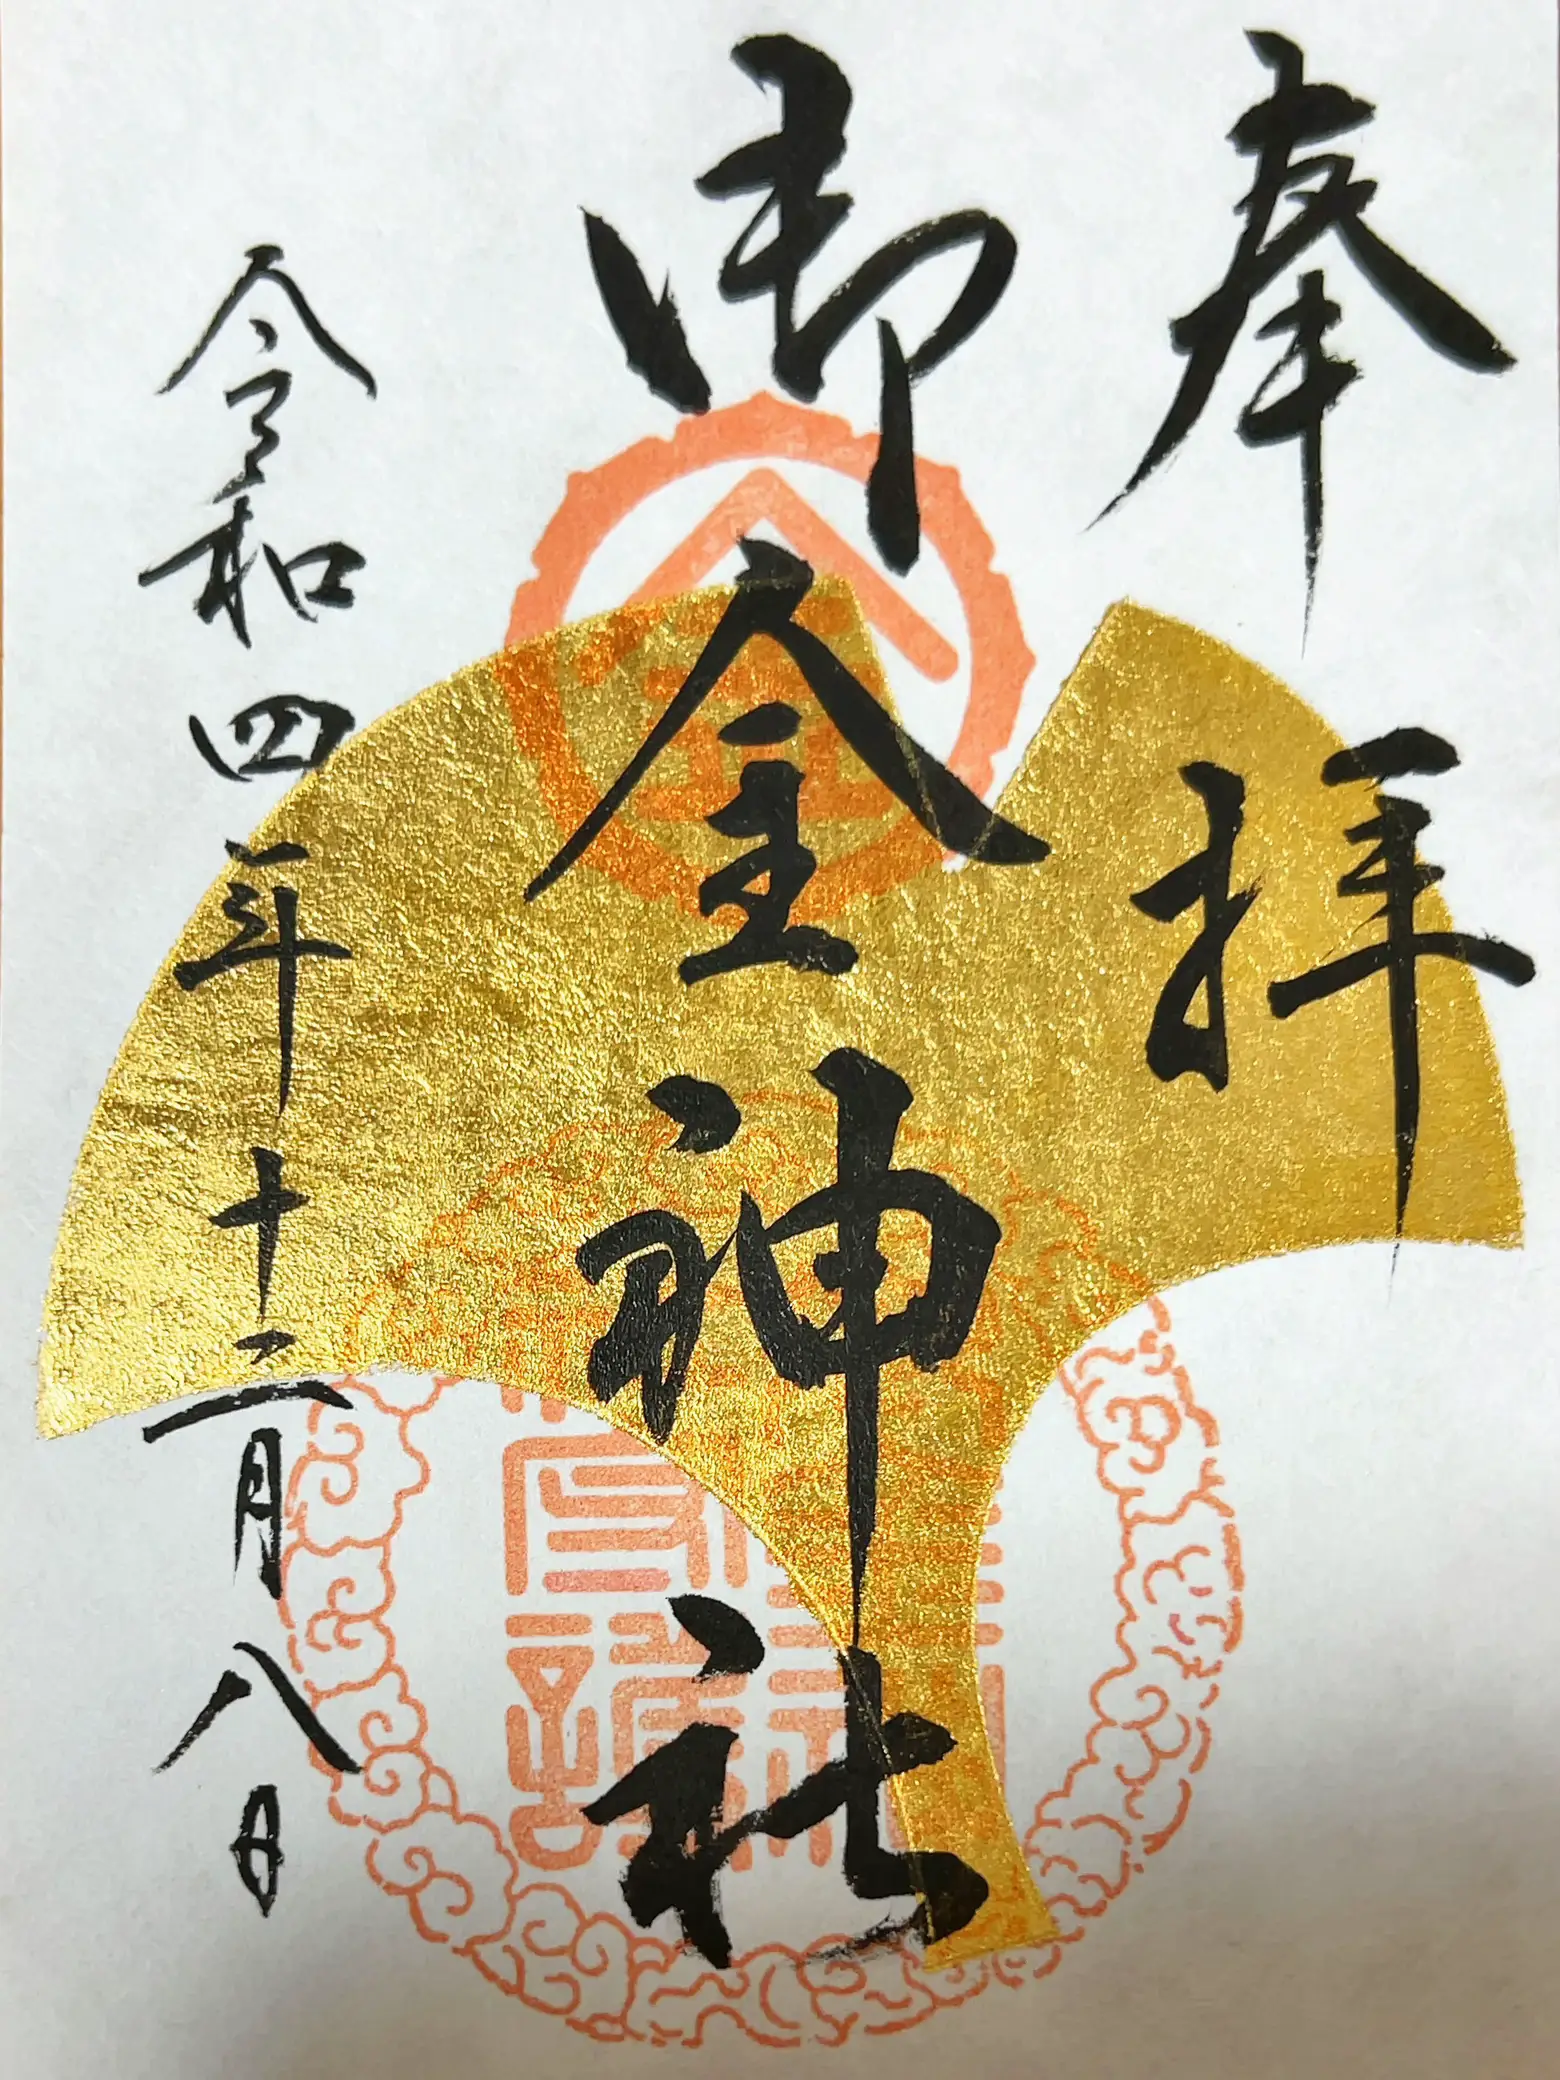 奉拝
御金神社
令和四年十二月八日